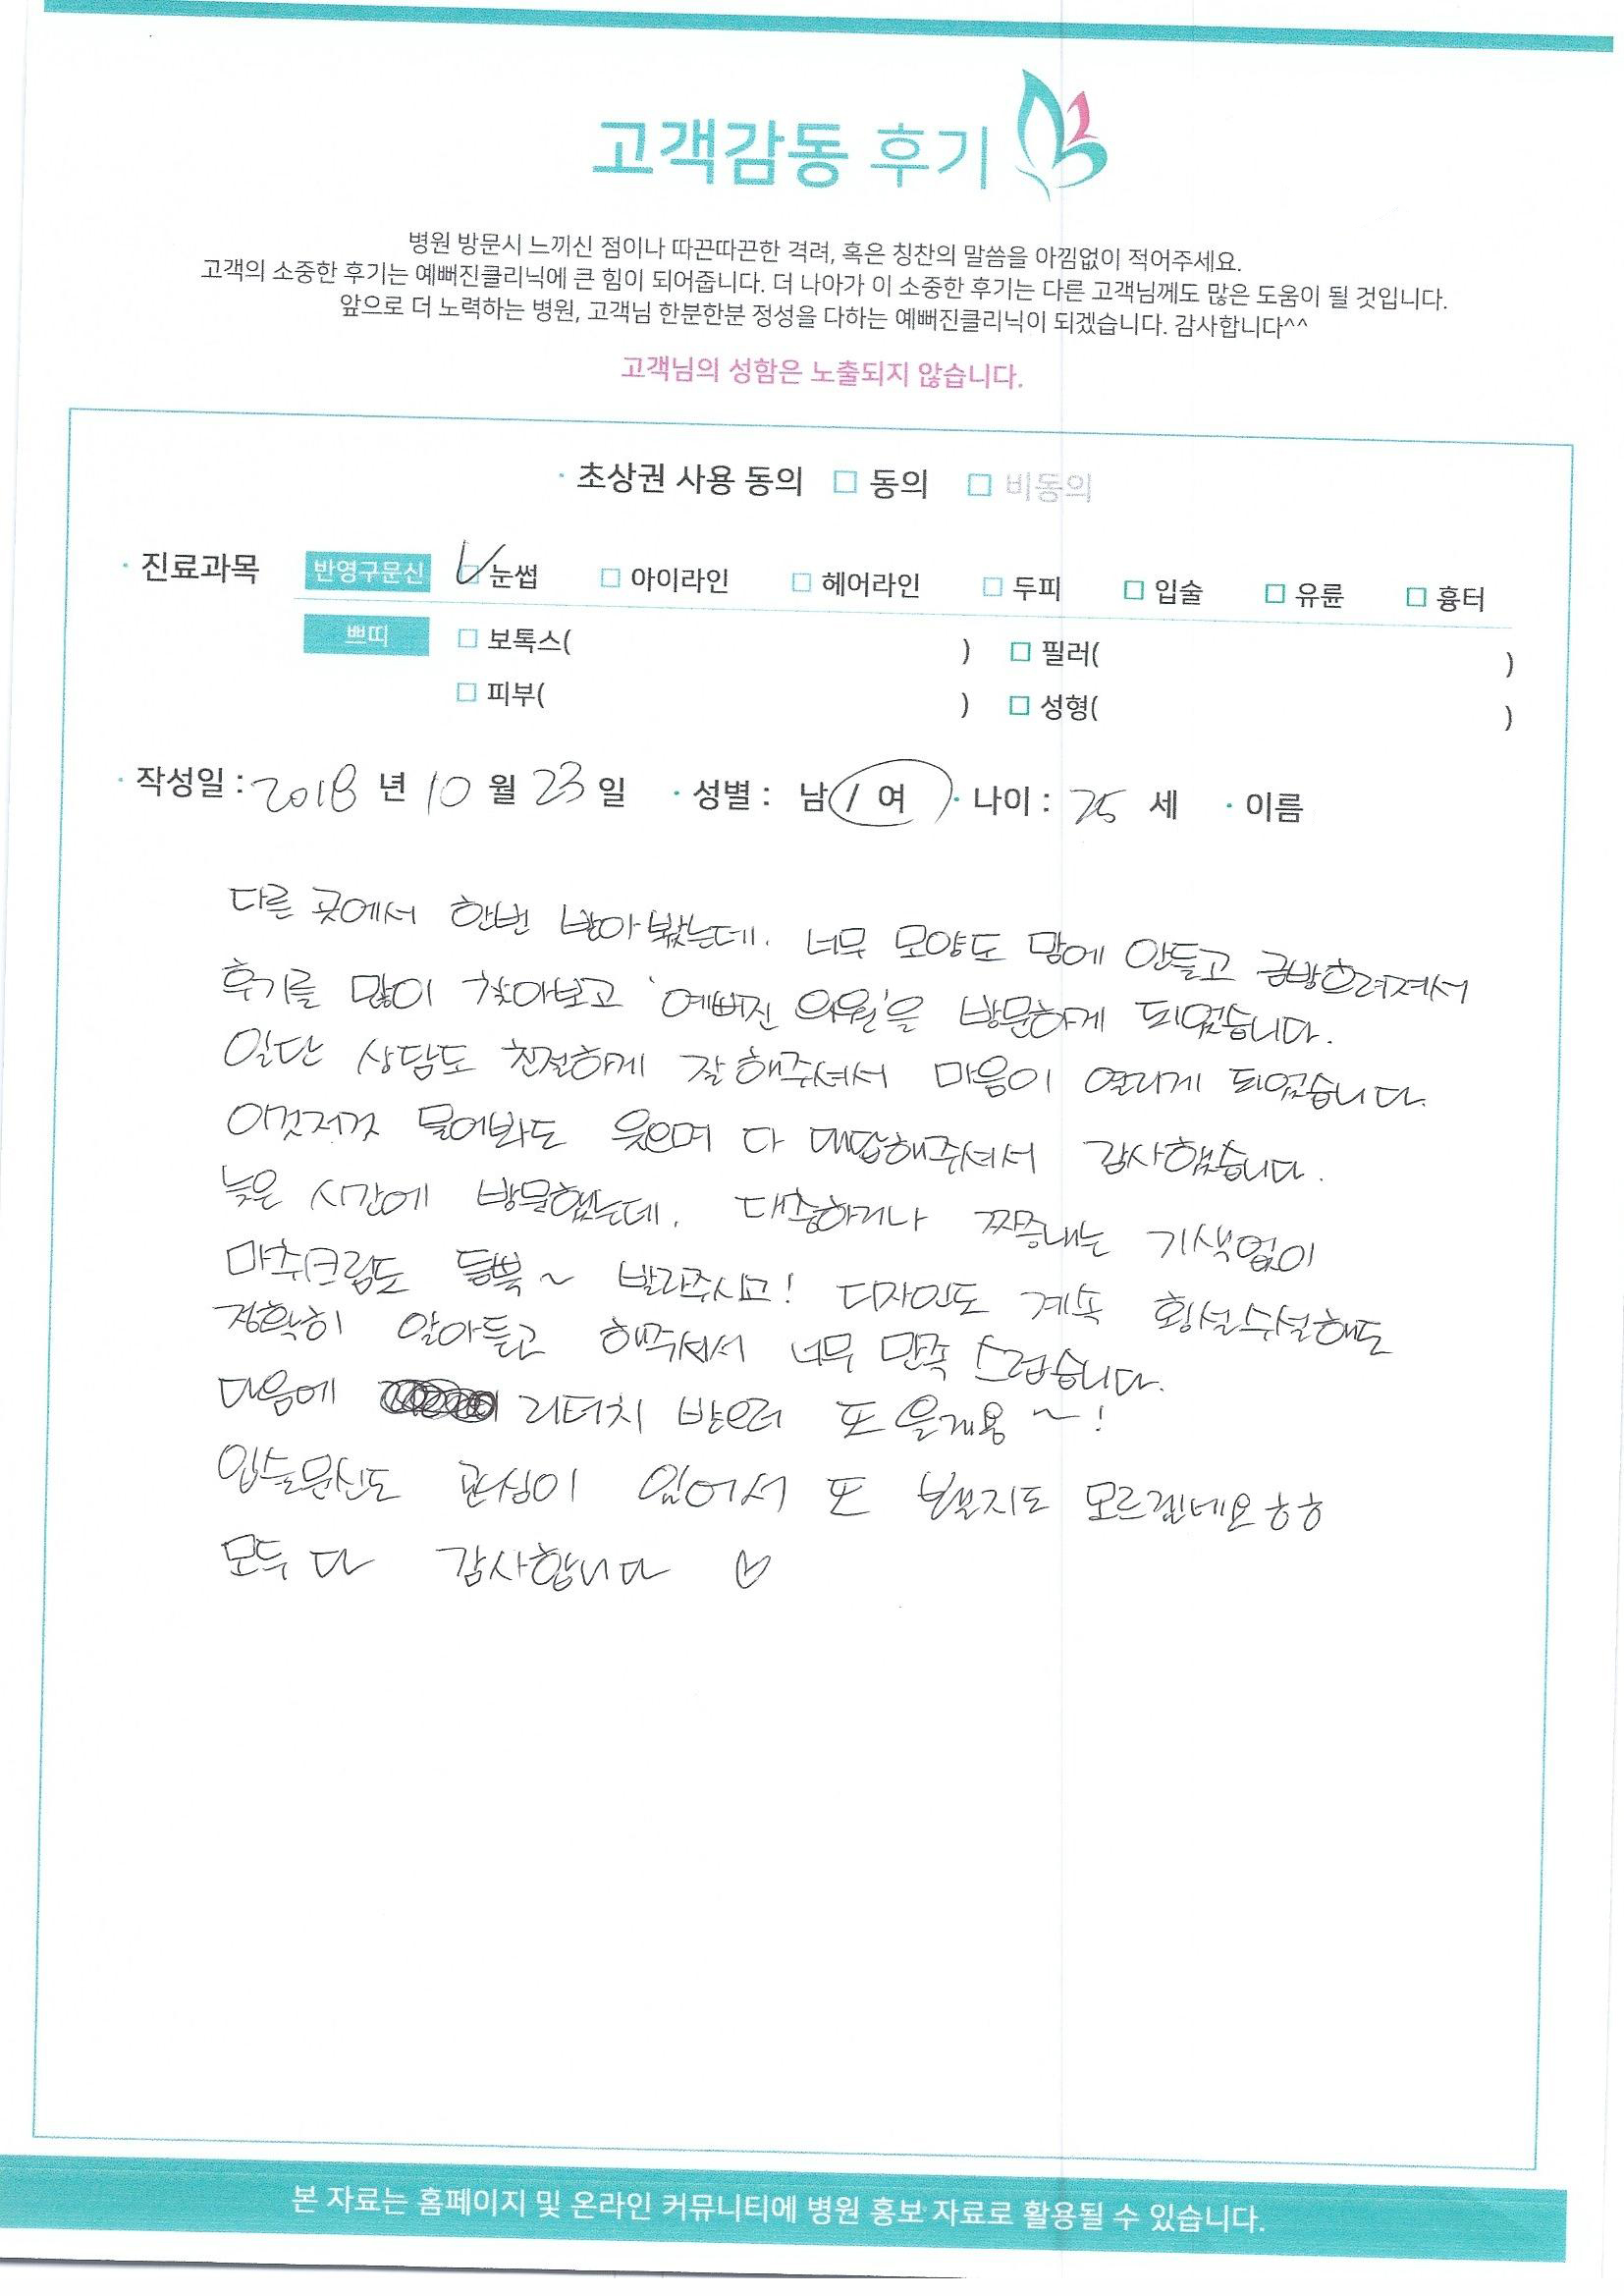 고객감동 후기
병원 방문시 느끼신 점이나 따끈따끈한 격려, 혹은 칭찬의 말씀을 아낌없이 적어주세요.
고객의 소중한 후기는 예뻐진클리닉에 큰 힘이 되어줍니다. 더 나아가 이 소중한 후기는 다른 고객님께도 많은 도움이 될 것입니다.
앞으로 더 노력하는 병원, 고객님 한분한분 정성을 다하는 예뻐진클리닉이 되겠습니다. 감사합니다^^
고객님의 성함은 노출되지 않습니다.
· 초상권 사용 동의 □ 동의 □ 비동의
· 진료과목 반영구문신 ☑ 눈썹 □ 아이라인 □ 헤어라인 □ 두피 □ 입술 □ 유륜 □ 흉터
쁘띠 □ 보톡스( ) □ 필러( )
□ 피부( ) □ 성형( )
· 작성일 : 2018 년 10 월 23 일 · 성별 : 남 / 여 · 나이 : 25 세 · 이름
다른 곳에서 한번 받아봤는데. 너무 모양도 맘에 안들고 금방흐려져서
후기를 많이 찾아보고 '예뻐진 의원'을 방문하게 되었습니다.
일단 상담도 친절하게 잘해주셔서 마음이 열리게 되었습니다.
이것저것 물어봐도 웃으며 다 대답해주셔서 감사했습니다.
늦은 시간에 방문했는데. 대충하거나 짜증내는 기색없이
마취크림도 듬뿍~ 발라주시고! 디자인도 계속 횡설수설해도
정확히 알아듣고 해주셔서 너무 만족스럽습니다.
다음에 리터치 받으러 또 올게용~!
입술문신도 관심이 있어서 또 받을지도 모르겠네요ㅎㅎ
모두 다 감사합니다 ♡
본 자료는 홈페이지 및 온라인 커뮤니티에 병원 홍보 자료로 활용될 수 있습니다.